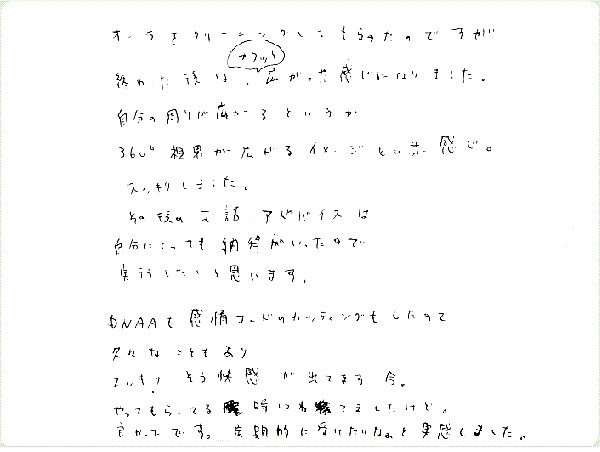 オーラをクリーニングしてもらったのですが
終わった後は、フワッと広がった感じになりました。
自分の周りが広がるというか
360°視界が広がるイメージといった感じ。
スッキリしました。
その後の会話 アドバイスは
自分にとっても納得がいったので
実行したいと思います。
DNAAも感情コードのカッティングもしたので
久々なこともあり
スッキリ そう快感が出てます 今。
やってもらってる時はねてましたけど。
良かったです。定期的に受けたいなぁと実感しました。